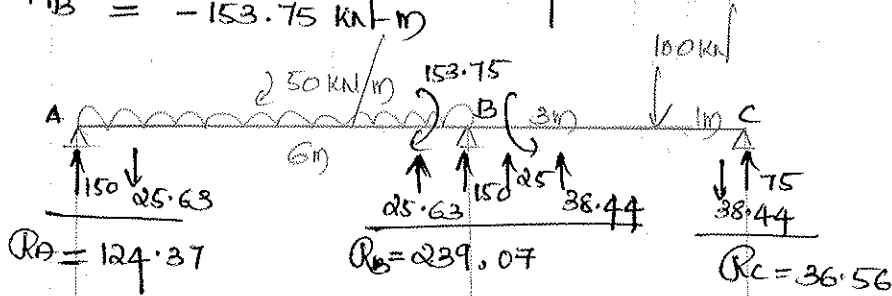 MB = -153.75 kN-m
100KN
50 KN/m 153.75
A B 3m 1m C
6m
150 25.63 25.63 150 25 38.44 38.44 75
RA = 124.37 RB = 239.07 RC = 36.56